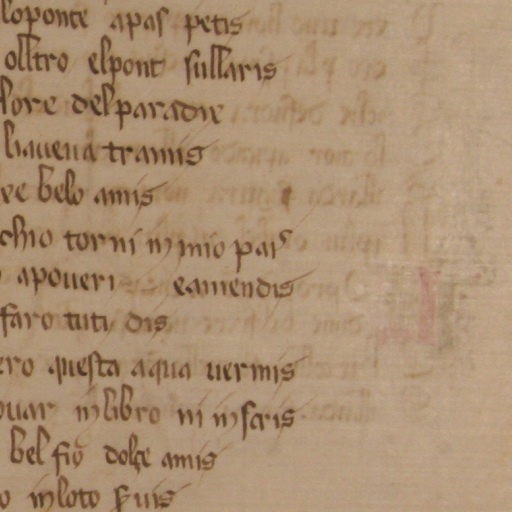 loponte apas petis
olltro elpont sullaris
lore delparadix
liaueua tramis
ee belo amis
chio torni in mio pais
apoueri eamendis
faro tuti dis
ero questa aqua uermis
ouar inlibro ni inscris
bel fio dolçe amis
o inloto